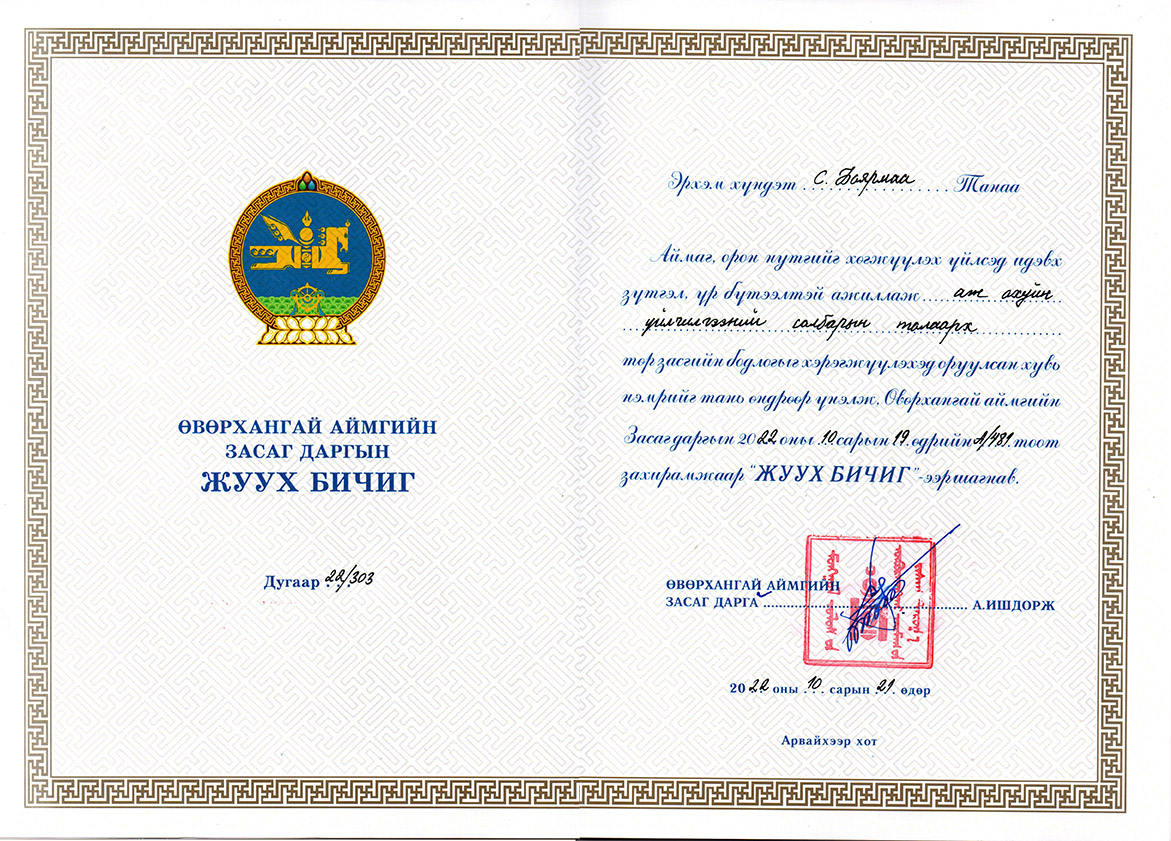 ӨВӨРХАНГАЙ АЙМГИЙН
ЗАСАГ ДАРГЫН
ЖУУХ БИЧИГ
Дугаар 22/303
Эрхэм хүндэт С. Баярмаа Танаа
Аймаг, орон нутгийг хөгжүүлэх үйлсэд идэвх
зүтгэл, үр бүтээлтэй ажиллаж аж ахуйн
үйлчилгээний салбарын талаарх
төр засгийн бодлогыг хэрэгжүүлэхэд оруулсан хувь
нэмрийг тань өндрөөр үнэлж, Өвөрхангай аймгийн
Засаг даргын 2022 оны 10 сарын 19 өдрийн А/481 тоот
захирамжаар "ЖУУХ БИЧИГ"-ээр шагнав.
ӨВӨРХАНГАЙ АЙМГИЙН
ЗАСАГ ДАРГА А.ИШДОРЖ
2022 оны 10 сарын 21 өдөр
Арвайхээр хот